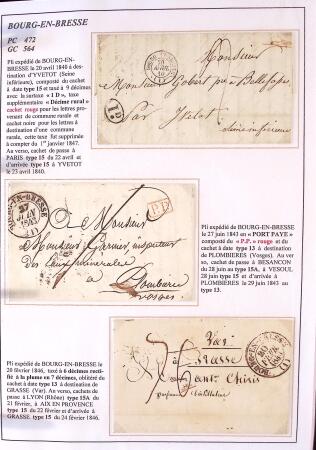 BOURG-EN-BRESSE
PC 472
GC 564
Pli expédié de BOURG-EN-BRESSE
le 20 avril 1840 à des-
tination d'YVETOT (Seine
inférieure), composé du cachet
à date type 15 et taxé à 9 décimes
avec la surtaxe « 1 D », taxe
supplémentaire « Décime rural »
cachet rouge pour les lettres pro-
venant de commune rurale et
cachet noire pour les lettres à
destination d'une commune
rurale, cette taxe fut supprimée
à compter du 1er janvier 1847.
Au verso, cachet de passe à
PARIS type 15 du 22 avril et
d'arrivée type 15 à YVETOT
le 23 avril 1840.
Monsieur
Monsieur
Par Yvetot
1D
à Monsieur
Monsieur
des
à Plombières
Vosges
P.P.
Pli expédié de BOURG-EN-BRESSE
le 27 juin 1843 en « PORT PAYE »
composé du « P.P. » rouge et du
cachet à date type 13 à destination
de PLOMBIERES (Vosges). Au ver
so, cachet de passe à BESANCON
du 28 juin au type 15A, à VESOUL
du 28 juin au type 15 et d'arrivée à
PLOMBIERES le 29 juin 1843 au
type 13.
Pli expédié de BOURG-EN-BRESSE le
20 février 1846, taxé à 6 décimes recti-
fié à la plume en 7 décimes, oblitéré du
cachet à date type 13 à destination de
GRASSE (Var). Au verso, cachets de
passe à LYON (Rhône) type 15A du
21 février, AIX EN PROVENCE
type 15 du 22 février et d'arrivée à
GRASSE type 15 du 24 février 1846.
Var
à Grasse